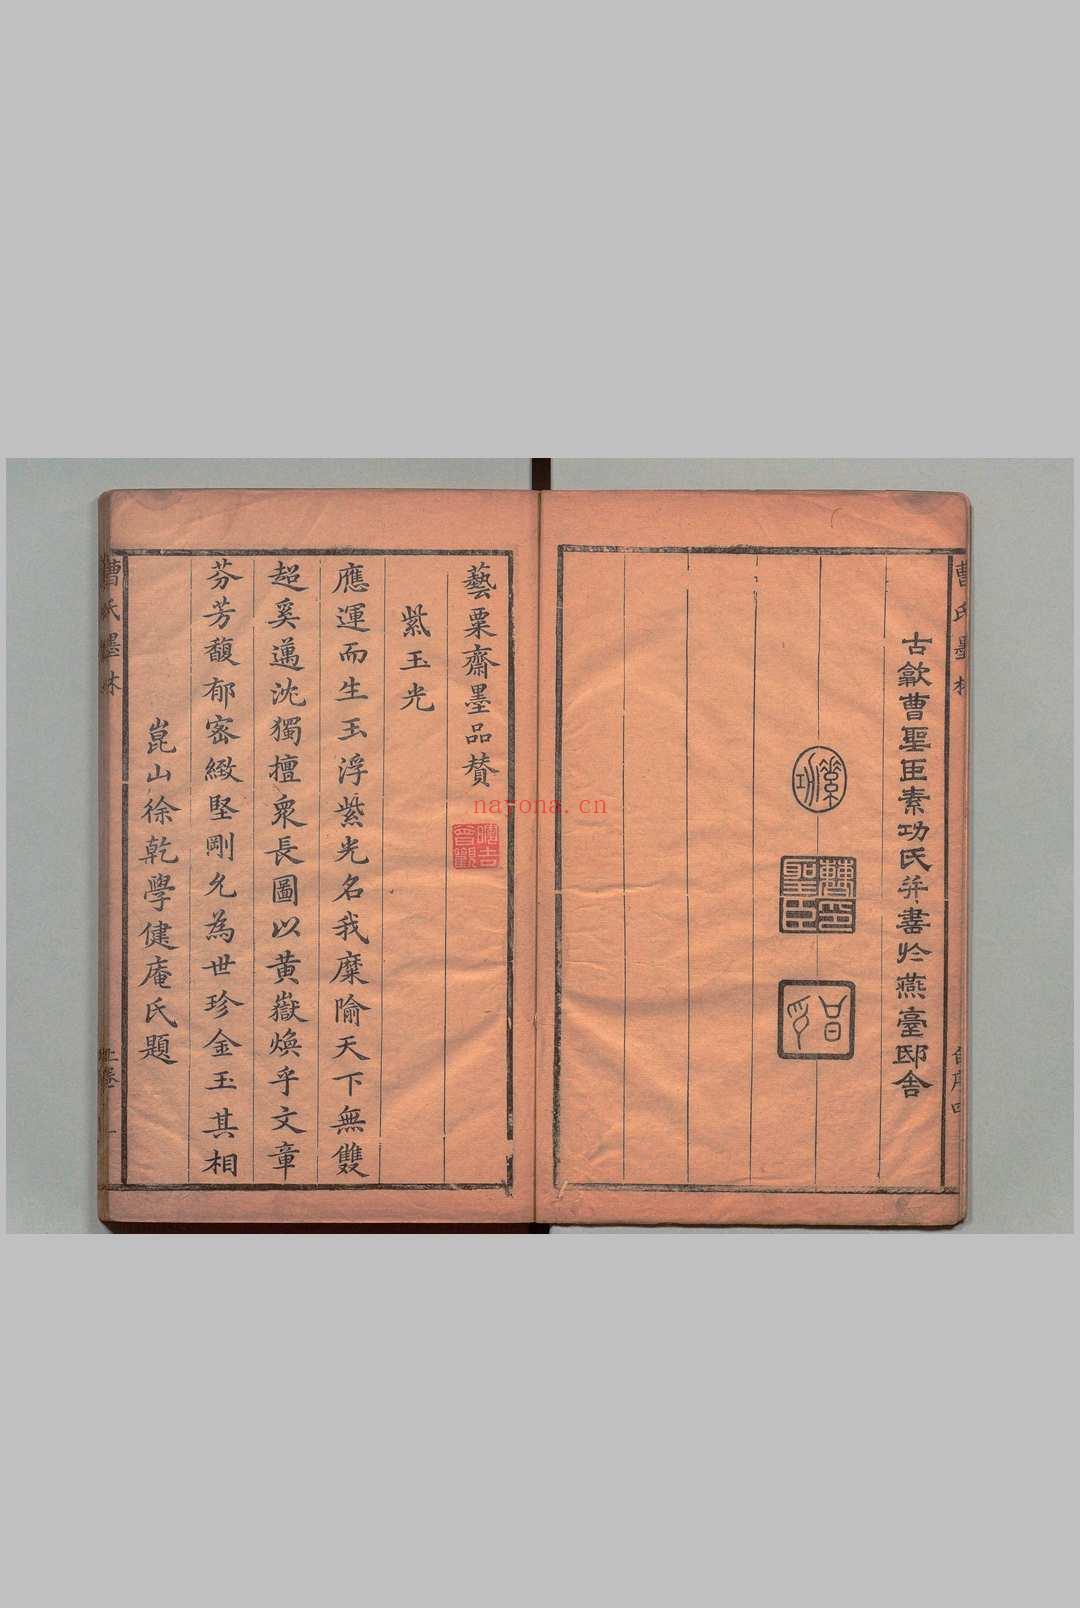 曹氏墨林
自序四
古歙曹聖臣素功氏并書於燕臺邸舍
素功
曹聖臣印
藝粟齋墨品贊
曾觀
紫玉光
應運而生玉浮紫光名我糜隃天下無雙
超奚邁沈獨擅衆長圖以黄嶽煥乎文章
芬芳馥郁密緻堅剛允為世珍金玉其相
崑山徐乾學健庵氏題
曹氏墨林
上卷
一
nayona.cn